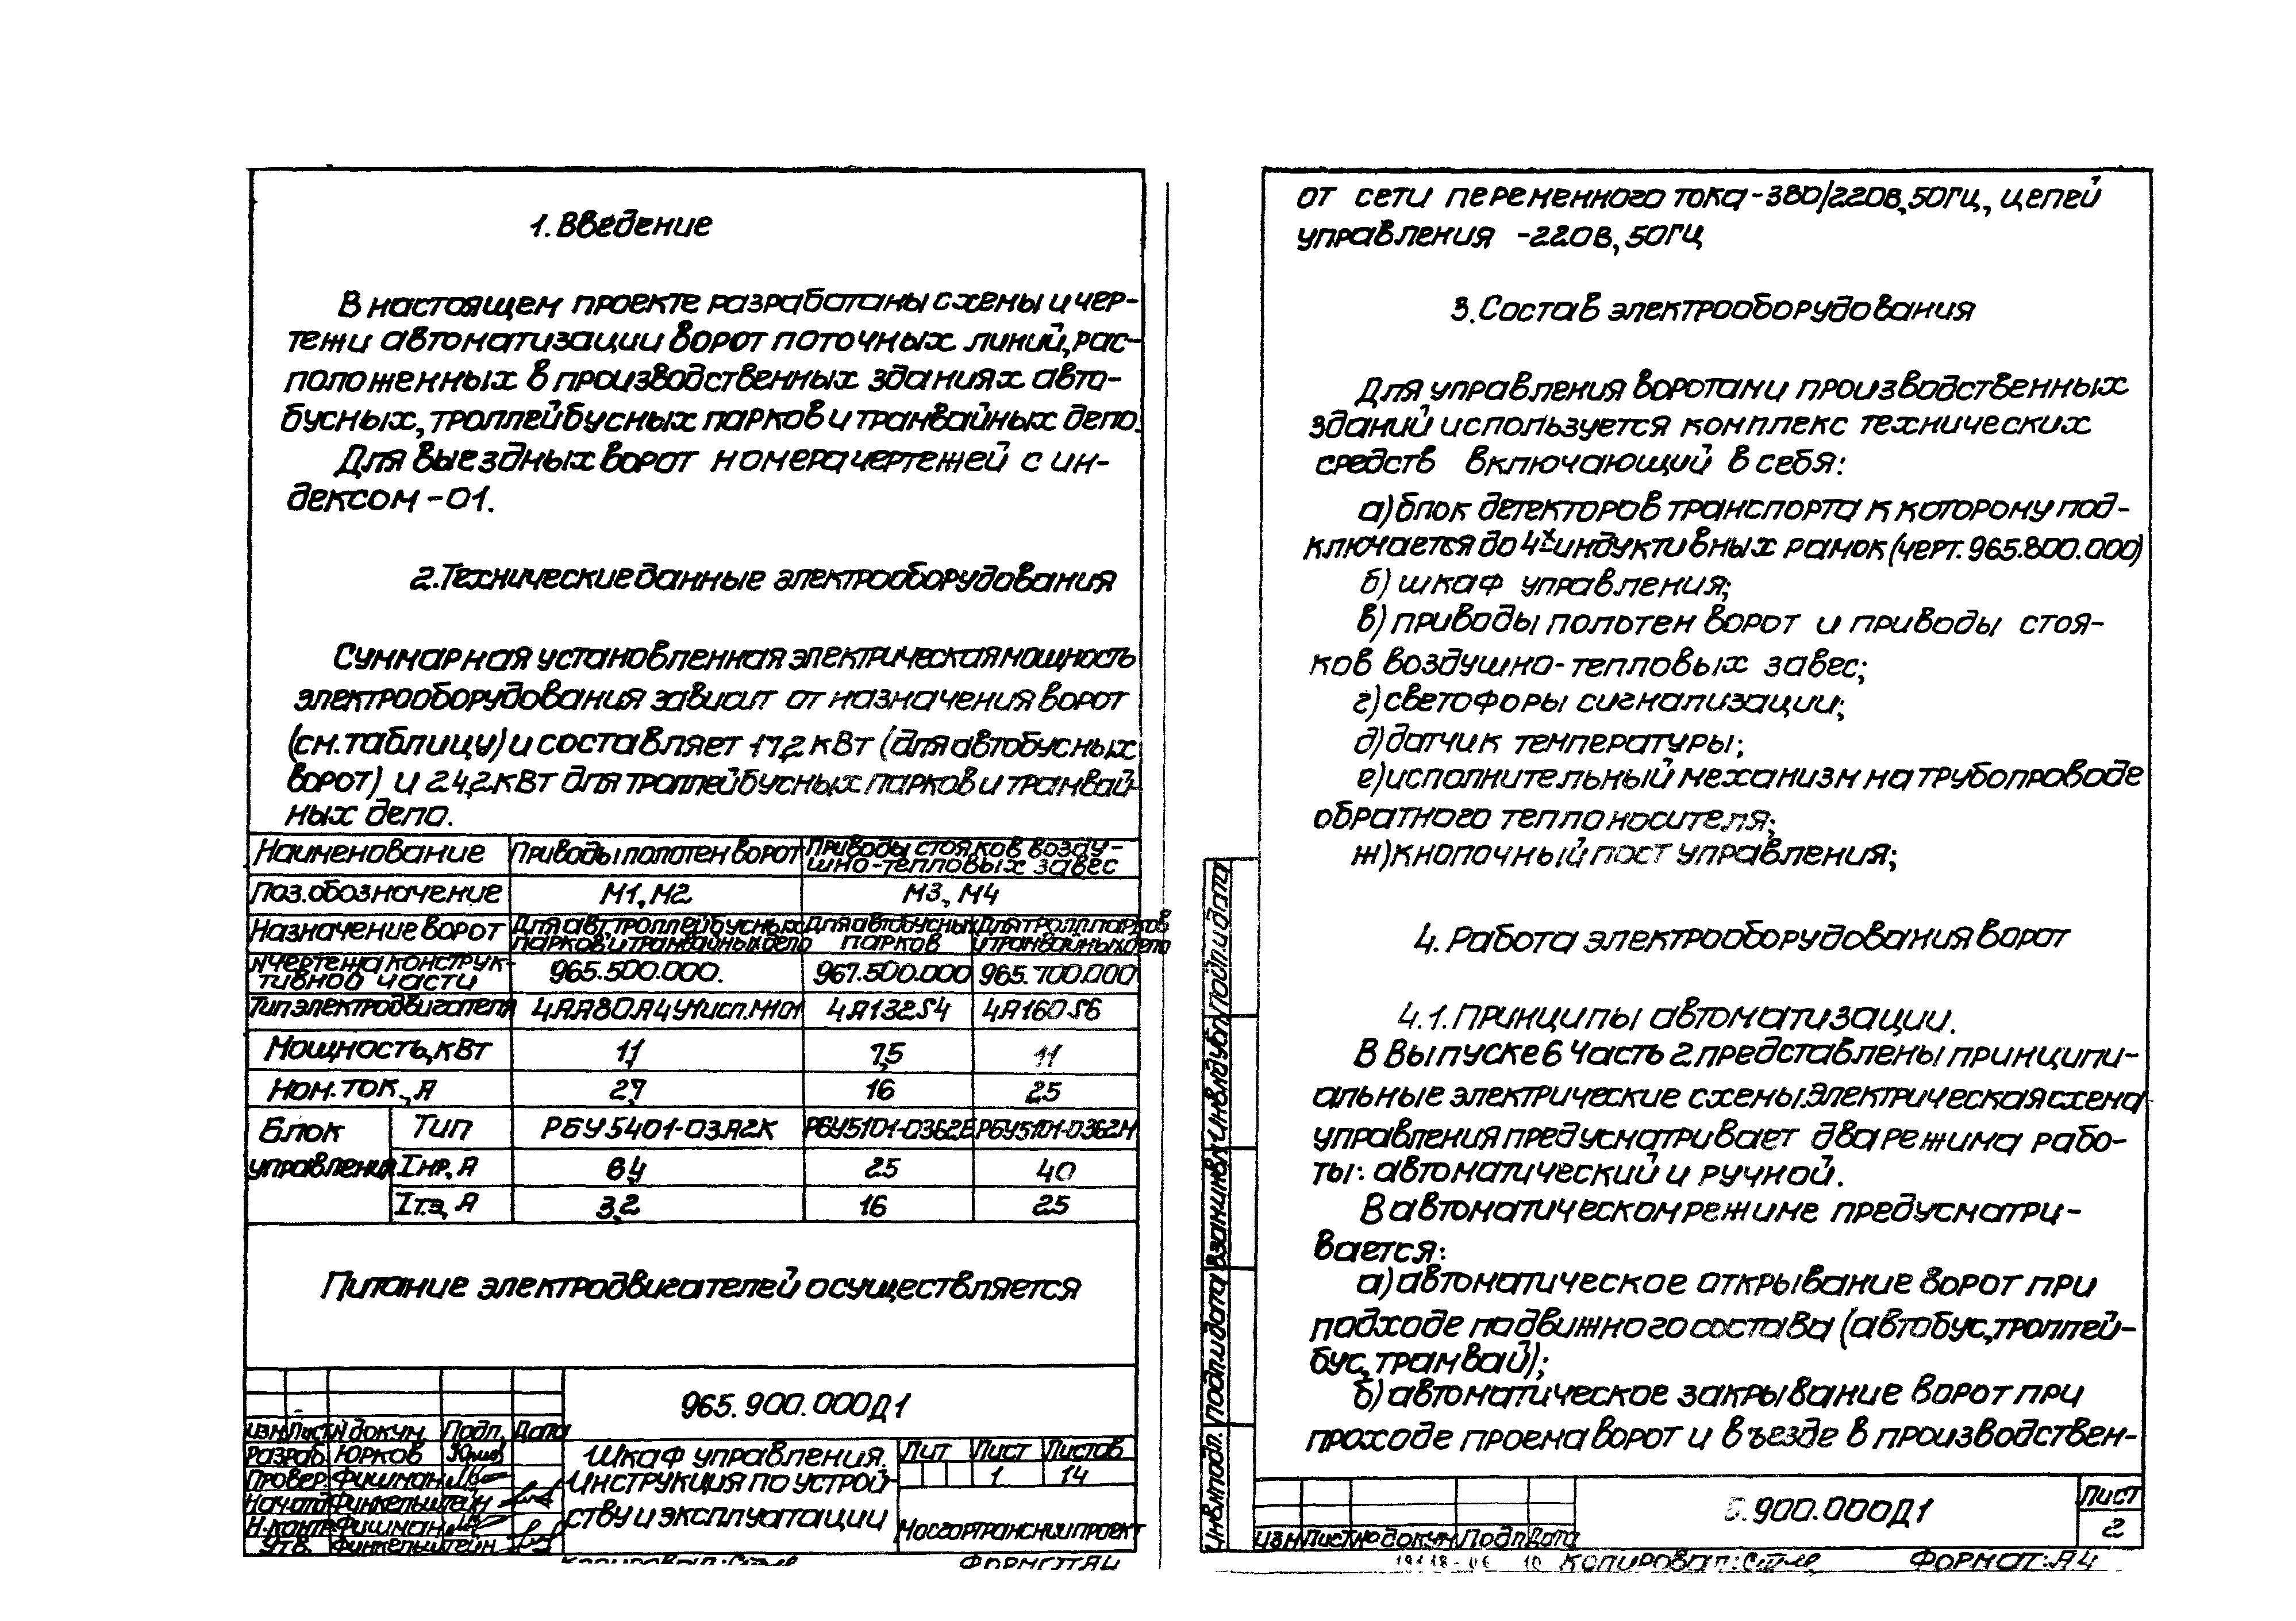 1. Введение
В настоящем проекте разработаны схемы и чер-
тежи автоматизации ворот поточных линий, рас-
положенных в производственных зданиях авто-
бусных, троллейбусных парков и трамвайных депо.
Для выездных ворот номера чертежей с ин-
дексом -01.
2. Технические данные электрооборудования
Суммарная установленная электрическая мощность
электрооборудования зависит от назначения ворот
(см. таблицу) и составляет 17,2 кВт (для автобусных
ворот) и 24,2 кВт для троллейбусных парков и трамвай-
ных депо.
Наименование Приводы полотен ворот Приводы стояков возду-
шно-тепловых завес
Поз. обозначение М1, М2 М3, М4
Назначение ворот Для авт, троллейбусных Для автобусных Для тролл. парков
парков, и трамвайных депо парков и трамвайных депо
№ чертежа конструк-
тивной части 965.500.000. 967.500.000 965.700.000
Тип электродвигателя 4АА80А4У1исп.М101 4А132S4 4А160S6
Мощность, кВт 1,1 7,5 11
Ном. ток, А 2,7 16 25
Блок управления Тип РБУ5401-03А2К РБУ5101-0362Е РБУ5101-0362М
Iнр, А 6,4 25 40
Iт.э, А 3,2 16 25
Питание электродвигателей осуществляется
965.900.000Д1
Изм Лист № докум. Подп. Дата
Разраб. Юрков
Провер. Фишман
Нач.отд Финкельштейн
Н.контр Фишман
Утв. Финкельштейн
Шкаф управления.
Инструкция по устрой-
ству и эксплуатации
Лит Лист Листов
1 14
Мосгортрансниипроект
Копировал: Формат А4
от сети переменного тока - 380/220в, 50Гц, цепей
управления -220в, 50Гц
3. Состав электрооборудования
Для управления воротами производственных
зданий используется комплекс технических
средств включающий в себя:
а) блок детекторов транспорта к которому под-
ключается до 4х индуктивных рамок (черт. 965.800.000)
б) шкаф управления;
в) приводы полотен ворот и приводы стоя-
ков воздушно-тепловых завес;
г) светофоры сигнализации;
д) датчик температуры;
е) исполнительный механизм на трубопроводе
обратного теплоносителя;
ж) кнопочный пост управления;
4. Работа электрооборудования ворот
4.1. Принципы автоматизации.
В Выпуске 6 Часть 2 представлены принципи-
альные электрические схемы. Электрическая схема
управления предусматривает два режима рабо-
ты: автоматический и ручной.
В автоматическом режиме предусматри-
вается:
а) автоматическое открывание ворот при
подходе подвижного состава (автобус, троллей-
бус, трамвай);
б) автоматическое закрывание ворот при
проходе проема ворот и въезде в производствен-
Инв № подл. Подп. и дата Взам. инв. № Инв. № дубл. Подп. и дата
Изм Лист № докум Подп. Дата
5.900.000Д1
Лист
2
19118-06 10 Копировал: Формат: А4